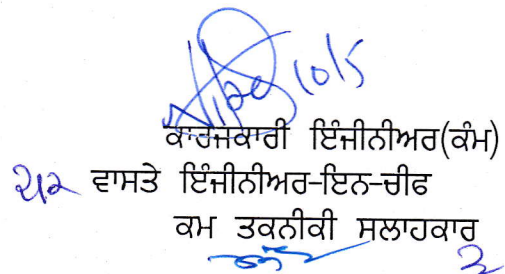 10/5
ਕਾਰਜਕਾਰੀ ਇੰਜੀਨੀਅਰ(ਕੰਮ)
ਵਾਸਤੇ ਇੰਜੀਨੀਅਰ-ਇਨ-ਚੀਫ
ਕਮ ਤਕਨੀਕੀ ਸਲਾਹਕਾਰ